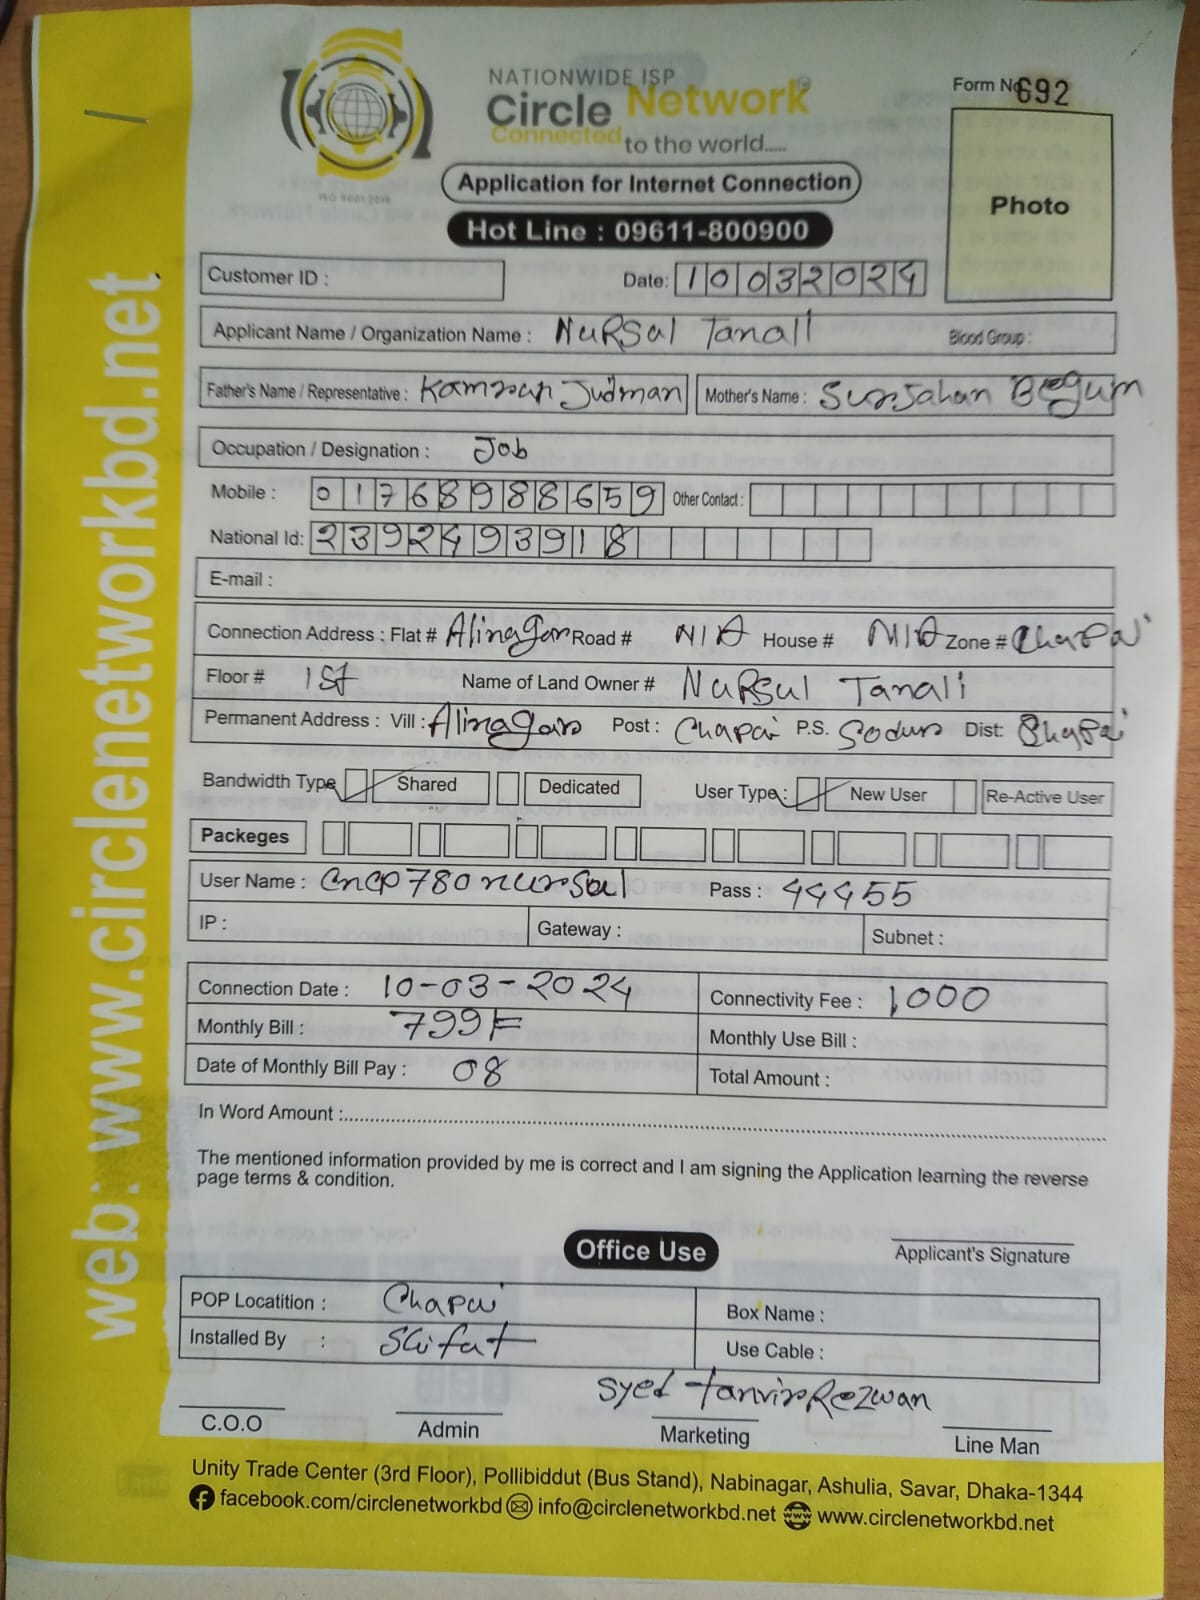 NATIONWIDE ISP
Circle Network
Connected to the world.....
ISO 9001:2015
Form No 692
Application for Internet Connection
Photo
Hot Line : 09611-800900
Customer ID : Date: 10032024
Applicant Name / Organization Name : NURSul Tanali Blood Group :
Father's Name / Representative : Kamran Judman Mother's Name : Surjahan Begum
Occupation / Designation : Job
Mobile : 01768988659 Other Contact :
National Id: 2392493918
E-mail :
Connection Address : Flat # Alinagar Road # N/A House # N/A Zone # Chapai
Floor # 1st Name of Land Owner # NURSul Tanali
Permanent Address : Vill : Alinagar Post : Chapai P.S. Sodur Dist: Chapai
Bandwidth Type Shared Dedicated User Type : New User Re-Active User
Packeges
User Name : cncp780nursul Pass : 44455
IP : Gateway : Subnet :
Connection Date : 10-03-2024 Connectivity Fee : 1,000
Monthly Bill : 799/= Monthly Use Bill :
Date of Monthly Bill Pay : 08 Total Amount :
In Word Amount :
The mentioned information provided by me is correct and I am signing the Application learning the reverse
page terms & condition.
Office Use Applicant's Signature
POP Locatition : Chapai Box Name :
Installed By : Sifat Use Cable :
Syed Tanvir Rezwan
C.O.O Admin Marketing Line Man
Unity Trade Center (3rd Floor), Pollibiddut (Bus Stand), Nabinagar, Ashulia, Savar, Dhaka-1344
facebook.com/circlenetworkbd info@circlenetworkbd.net www.circlenetworkbd.net
web: www.circlenetworkbd.net